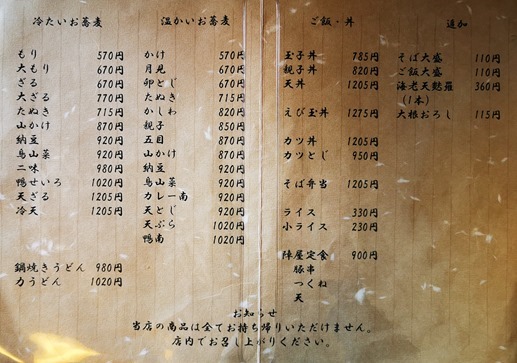 冷たいお蕎麦
もり 570円
大もり 670円
ざる 670円
大ざる 770円
たぬき 715円
山かけ 870円
納豆 920円
鳥山菜 920円
二味 980円
鴨せいろ 1020円
天ざる 1205円
冷天 1205円
鍋焼きうどん 980円
力うどん 1020円
温かいお蕎麦
かけ 570円
月見 670円
卵とじ 670円
たぬき 715円
かしわ 820円
親子 850円
五目 870円
山かけ 870円
納豆 920円
鳥山菜 920円
カレー南 920円
天とじ 920円
天ぷら 1020円
鴨南 1020円
ご飯・丼
玉子丼 785円
親子丼 820円
天丼 1205円
えび玉丼 1275円
カツ丼 1205円
カツとじ 950円
そば弁当 1205円
ライス 330円
小ライス 230円
陣屋定食 900円
豚串
つくね
天
追加
そば大盛 110円
ご飯大盛 110円
海老天麩羅 360円
(1本)
大根おろし 115円
お知らせ
当店の商品は全てお持ち帰りいただけません。
店内でお召し上がりください。